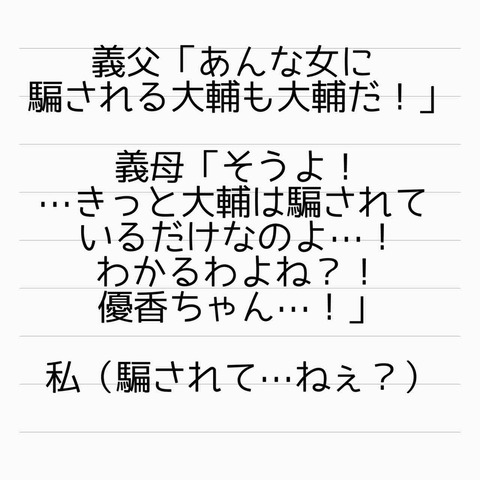 義父「あんな女に
騙される大輔も大輔だ！」
義母「そうよ！
…きっと大輔は騙されて
いるだけなのよ…！
わかるわよね？！
優香ちゃん…！」
私（騙されて…ねぇ？）